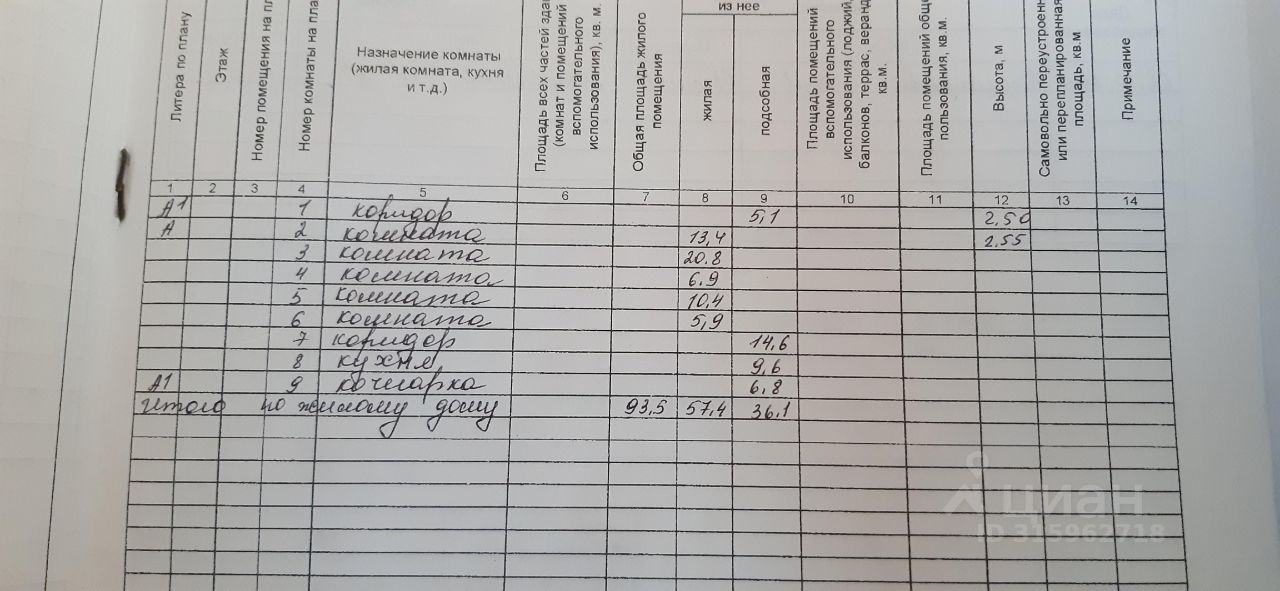 из нее
Литера по плану
Этаж
Номер помещения на пл
Номер комнаты на пла
Назначение комнаты
(жилая комната, кухня
и т.д.)
Площадь всех частей здан
(комнат и помещений
вспомогательного
использования), кв. м.
Общая площадь жилого
помещения
жилая
подсобная
Площадь помещений
вспомогательного
использования (лоджий,
балконов, террас, веранд
кв.м.
Площадь помещений общег
пользования, кв.м
Высота, м
Самовольно переустроенн
или перепланированная
площадь, кв.м
Примечание
1 2 3 4 5 6 7 8 9 10 11 12 13 14
А1 1 коридор 5,1 2,50
А 2 комната 13,4 2,55
3 комната 20.8
4 комната 6.9
5 комната 10.4
6 комната 5,9
7 коридор 14,6
8 кухня 9,6
А1 9 кочегарка 6,8
Итого по жилому дому 93,5 57,4 36,1
циан
ID 315962718